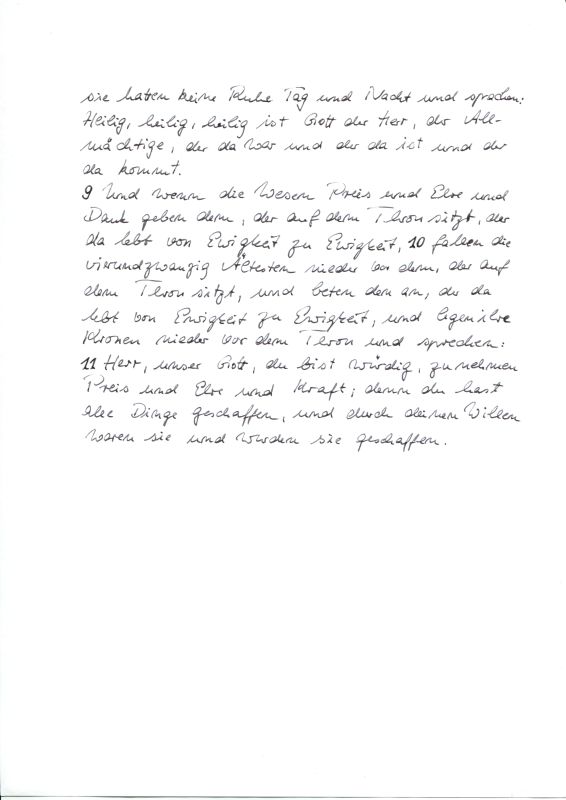 sie hatten keine Ruhe Tag und Nacht und sprachen:
Heilig, heilig, heilig ist Gott der Herr, der All-
mächtige, der da war und der da ist und der
da kommt.
9 Und wenn die Wesen Preis und Ehre und
Dank geben dem, der auf dem Thron sitzt, der
da lebt von Ewigkeit zu Ewigkeit, 10 fallen die
vierundzwanzig Ältesten nieder vor dem, der auf
dem Thron sitzt, und beten den an, der da
lebt von Ewigkeit zu Ewigkeit, und legen ihre
Kronen nieder vor dem Thron und sprechen:
11 Herr, unser Gott, du bist würdig, zu nehmen
Preis und Ehre und Kraft; denn du hast
alle Dinge geschaffen, und durch deinen Willen
waren sie und wurden sie geschaffen.